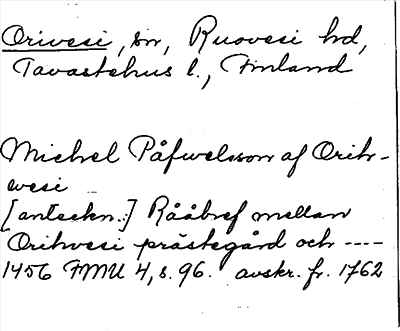 Orivesi, sn, Ruovesi hd,
Tavastehus l., Finland
Michel Påfwelsson af Orih-
wesi
[anteckn.:] Rååbref mellan
Orihvesi prästegård och ----
1456 FMU 4, s. 96. avskr. fr. 1762